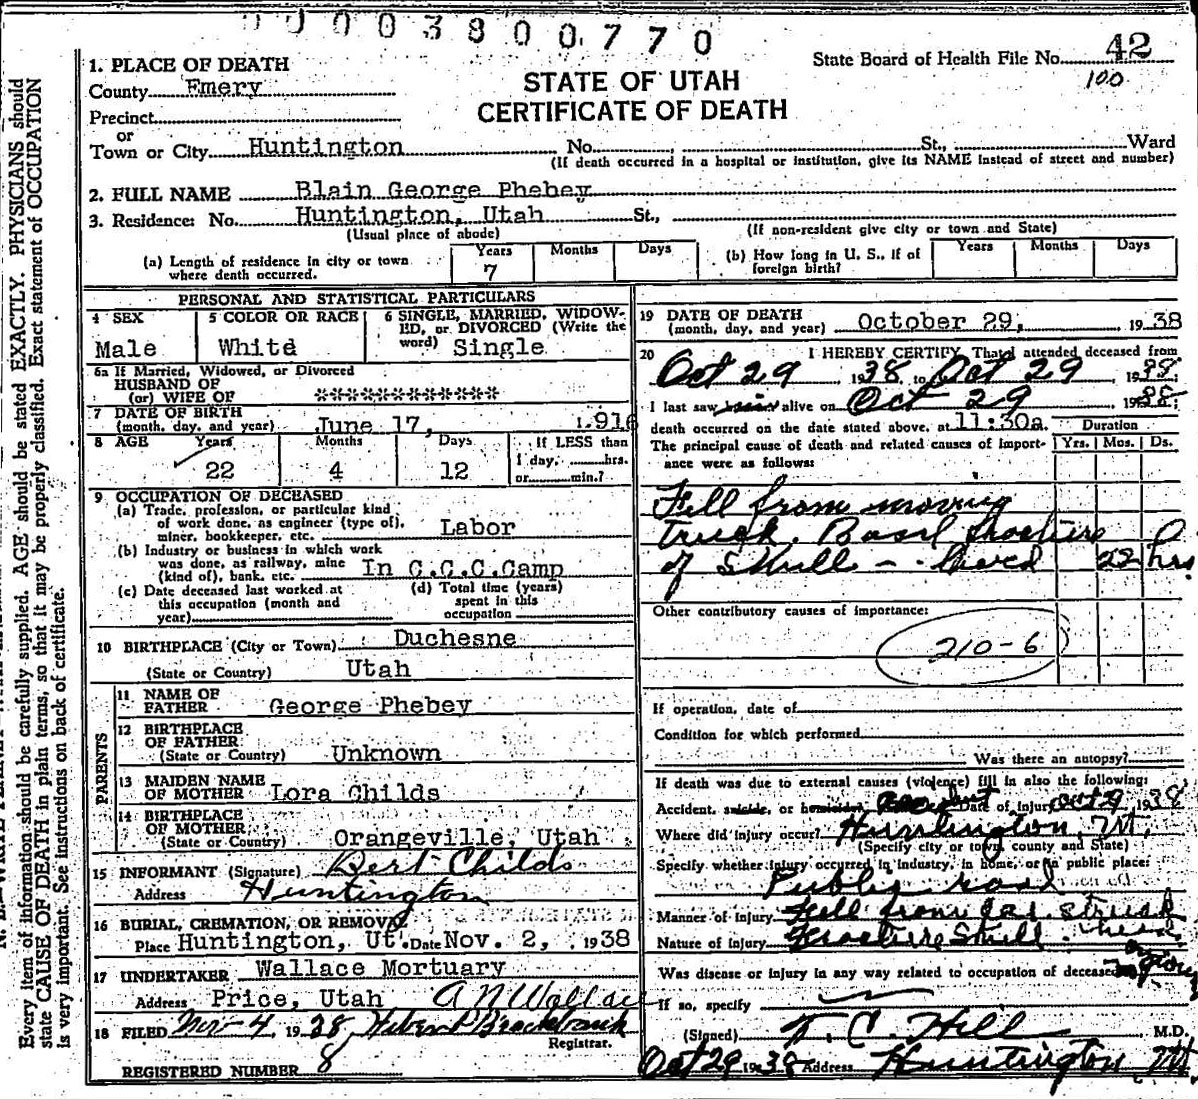 0003800770
State Board of Health File No. 42
100
STATE OF UTAH
CERTIFICATE OF DEATH
1. PLACE OF DEATH
County Emery
Precinct
or
Town or City Huntington No. , St., Ward
(If death occurred in a hospital or institution, give its NAME instead of street and number)
2. FULL NAME Blain George Phebey
3. Residence: No. Huntington, Utah St.,
(Usual place of abode) (If non-resident give city or town and State)
(a) Length of residence in city or town where death occurred. Years 7 Months Days
(b) How long in U. S., if of foreign birth? Years Months Days
PERSONAL AND STATISTICAL PARTICULARS
4 SEX Male
5 COLOR OR RACE White
6 SINGLE, MARRIED, WIDOWED, or DIVORCED (Write the word) Single
6a If Married, Widowed, or Divorced
HUSBAND OF
(or) WIFE OF ***************
7 DATE OF BIRTH
(month, day, and year) June 17, 1916
8 AGE Years 22 Months 4 Days 12 If LESS than
1 day, hrs.
or min.?
9 OCCUPATION OF DECEASED
(a) Trade, profession, or particular kind
of work done, as engineer (type of),
miner, bookkeeper, etc. Labor
(b) Industry or business in which work
was done, as railway, mine
(kind of), bank, etc. In C.C.C.Camp
(c) Date deceased last worked at
this occupation (month and
year)
(d) Total time (years)
spent in this
occupation
10 BIRTHPLACE (City or Town) Duchesne
(State or Country) Utah
PARENTS
11 NAME OF
FATHER George Phebey
12 BIRTHPLACE
OF FATHER
(State or Country) Unknown
13 MAIDEN NAME
OF MOTHER Lora Childs
14 BIRTHPLACE
OF MOTHER
(State or Country) Orangeville, Utah
15 INFORMANT (Signature) Bert Childs
Address Huntington
16 BURIAL, CREMATION, OR REMOVAL
Place Huntington, Ut. Date Nov. 2, 1938
17 UNDERTAKER Wallace Mortuary
Address Price, Utah A N Wallace
18 FILED Nov-4 1938, Registrar.
REGISTERED NUMBER 8
19 DATE OF DEATH
(month, day, and year) October 29, 1938
20 I HEREBY CERTIFY, That I attended deceased from
Oct 29 1938, to Oct 29 1938
I last saw him alive on Oct 29 1938;
death occurred on the date stated above, at 11:30a.
The principal cause of death and related causes of importance were as follows:
Duration
Yrs. Mos. Ds.
Fell from moving
truck. Basil fracture
of Skull - lived 22 hrs
Other contributory causes of importance:
210-6
If operation, date of
Condition for which performed
Was there an autopsy?
If death was due to external causes (violence) fill in also the following:
Accident, suicide, or homicide, Accident Date of injury Oct 29 1938
Where did injury occur? Huntington, Ut.
(Specify city or town, county and State)
Specify whether injury occurred in industry, in home, or in public place:
Public road
Manner of injury Fell from
Nature of injury Fracture Skull
Was disease or injury in any way related to occupation of deceased
If so, specify
(Signed) C. Hill M.D.
Oct 29 1938 Address Huntington Ut.
Every item of information should be carefully supplied. AGE should be stated EXACTLY. PHYSICIANS should
state CAUSE OF DEATH in plain terms, so that it may be properly classified. Exact statement of OCCUPATION
is very important. See instructions on back of certificate.